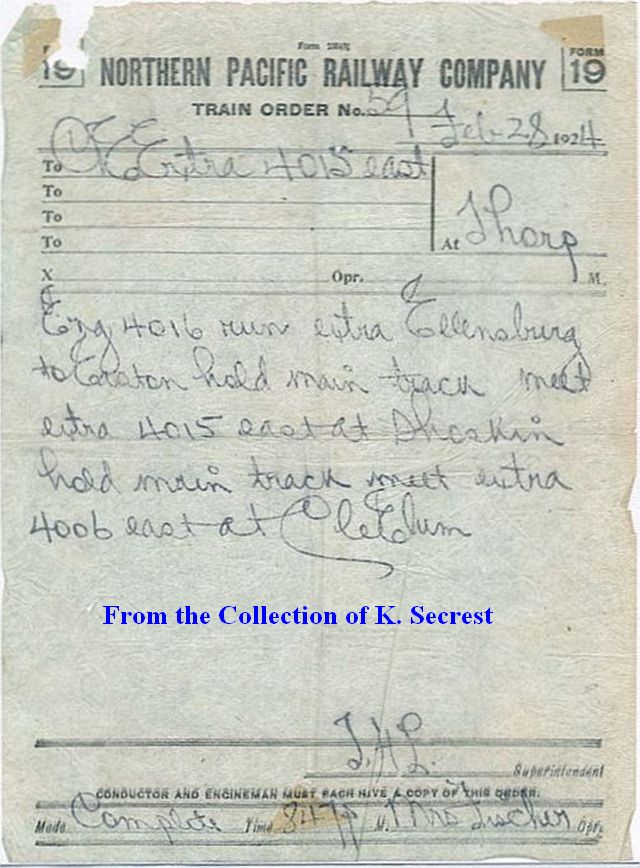 Form
FORM
19
19
NORTHERN PACIFIC RAILWAY COMPANY
TRAIN ORDER No. 59 Feb 28 1924
To C&E Extra 4015 east
To
To
To
At Thorp
X Opr. M.
Eng 4016 run extra Ellensburg
to Easton hold main track meet
extra 4015 east at Dhoskin
hold main track meet extra
4006 east at CleElum
From the Collection of K. Secrest
Superintendent
CONDUCTOR AND ENGINEMAN MUST EACH HAVE A COPY OF THIS ORDER.
Made Complete Time 847 P M. Mrs Tischer Opr.